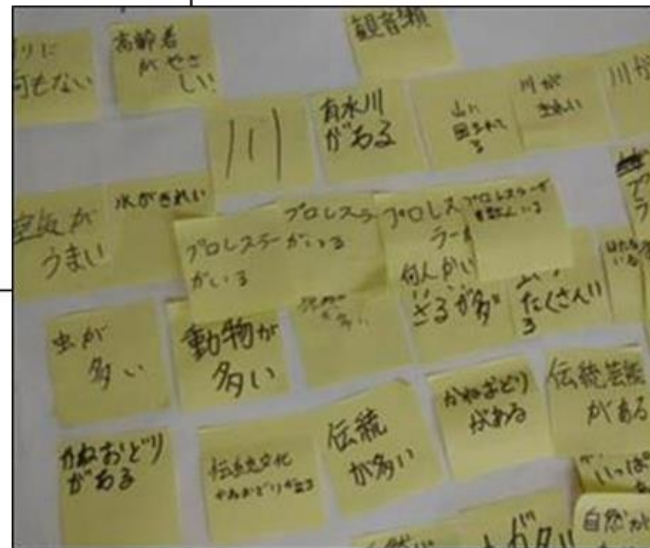 りに
何もない
高齢者
がやさ
しい
観音瀬
川
有水川
がある
山に
囲まれて
る
川が
きれい
川が
空気が
うまい
水がきれい
プロレスラー
がいる
プロレスラー
がいる
プロレス
ラーが
何人かい
プロレスラーが
さるが多
たくさんい
る
虫が
多い
動物が
多い
多い
かねおどり
がある
伝統文化
かねおどりがある
伝統
が多い
かねおどり
がある
伝統芸能
がある
いっぱ
自然が